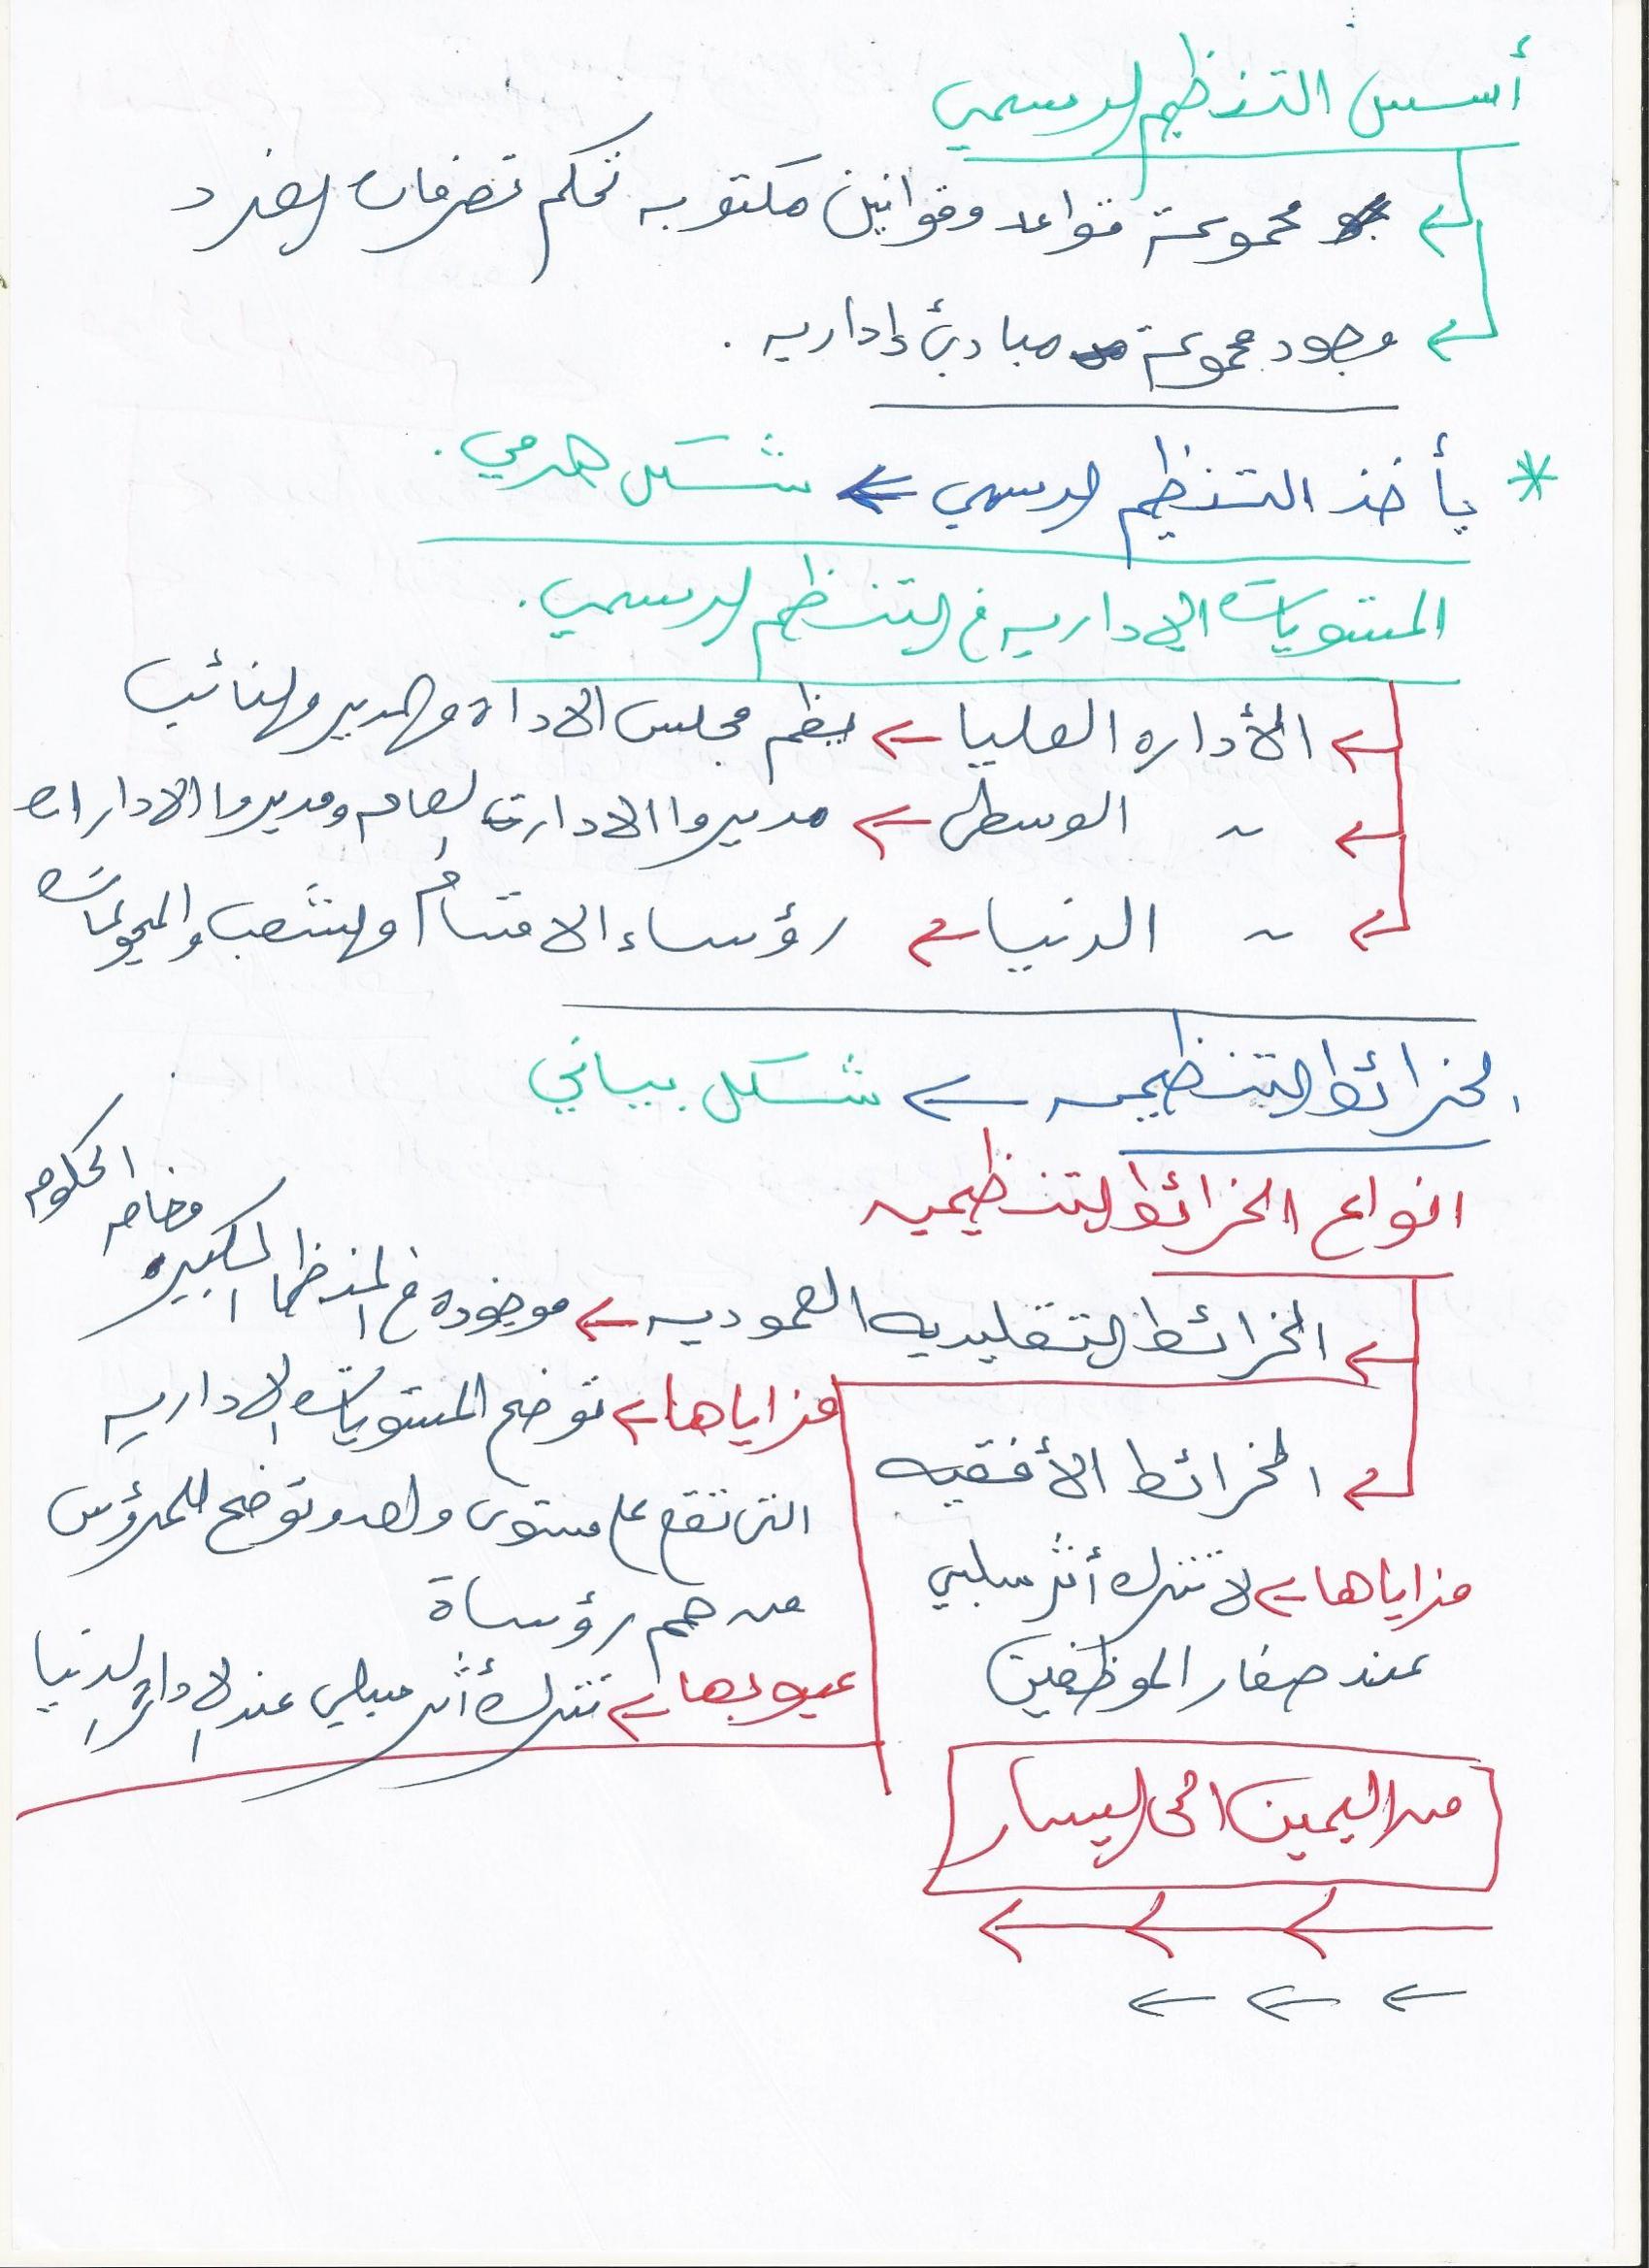 أسس التنظيم الرسمي
مجموعة قواعد وقوانين مكتوبه تحكم تصرفات الفرد
وجود مجموعة مبادئ إداريه .
* يأخذ التنظيم الرسمي ← شكل هرمي .
المستويات الاداريه في التنظيم الرسمي .
الأداره العليا ← يضم مجلس الاداة والمدير والنائب
~ الوسطى ← مديروا الادارت العامه ومديروا الادارات
~ الدنيا ← رؤساء الاقسام والشعب والمجموعات
الخرائط التنظيميه ← شكل بياني
انواع الخرائط التنظيميه
الخرائط التقليديه العموديه ← موجوده في المنظمات الكبيره وخاصه الحكومه
مزاياها ← توضح المستويات الاداريه
التى تقع على مستوى واحد وتوضح للمرؤس
من هم رؤساة
عيوبها ← تترك أثر سلبي عند الاداره الدنيا
الخرائط الأفقيه
مزاياها ← لا تترك أثر سلبي
عند صغار الموظفين
من اليمين الى اليسار
← ← ←